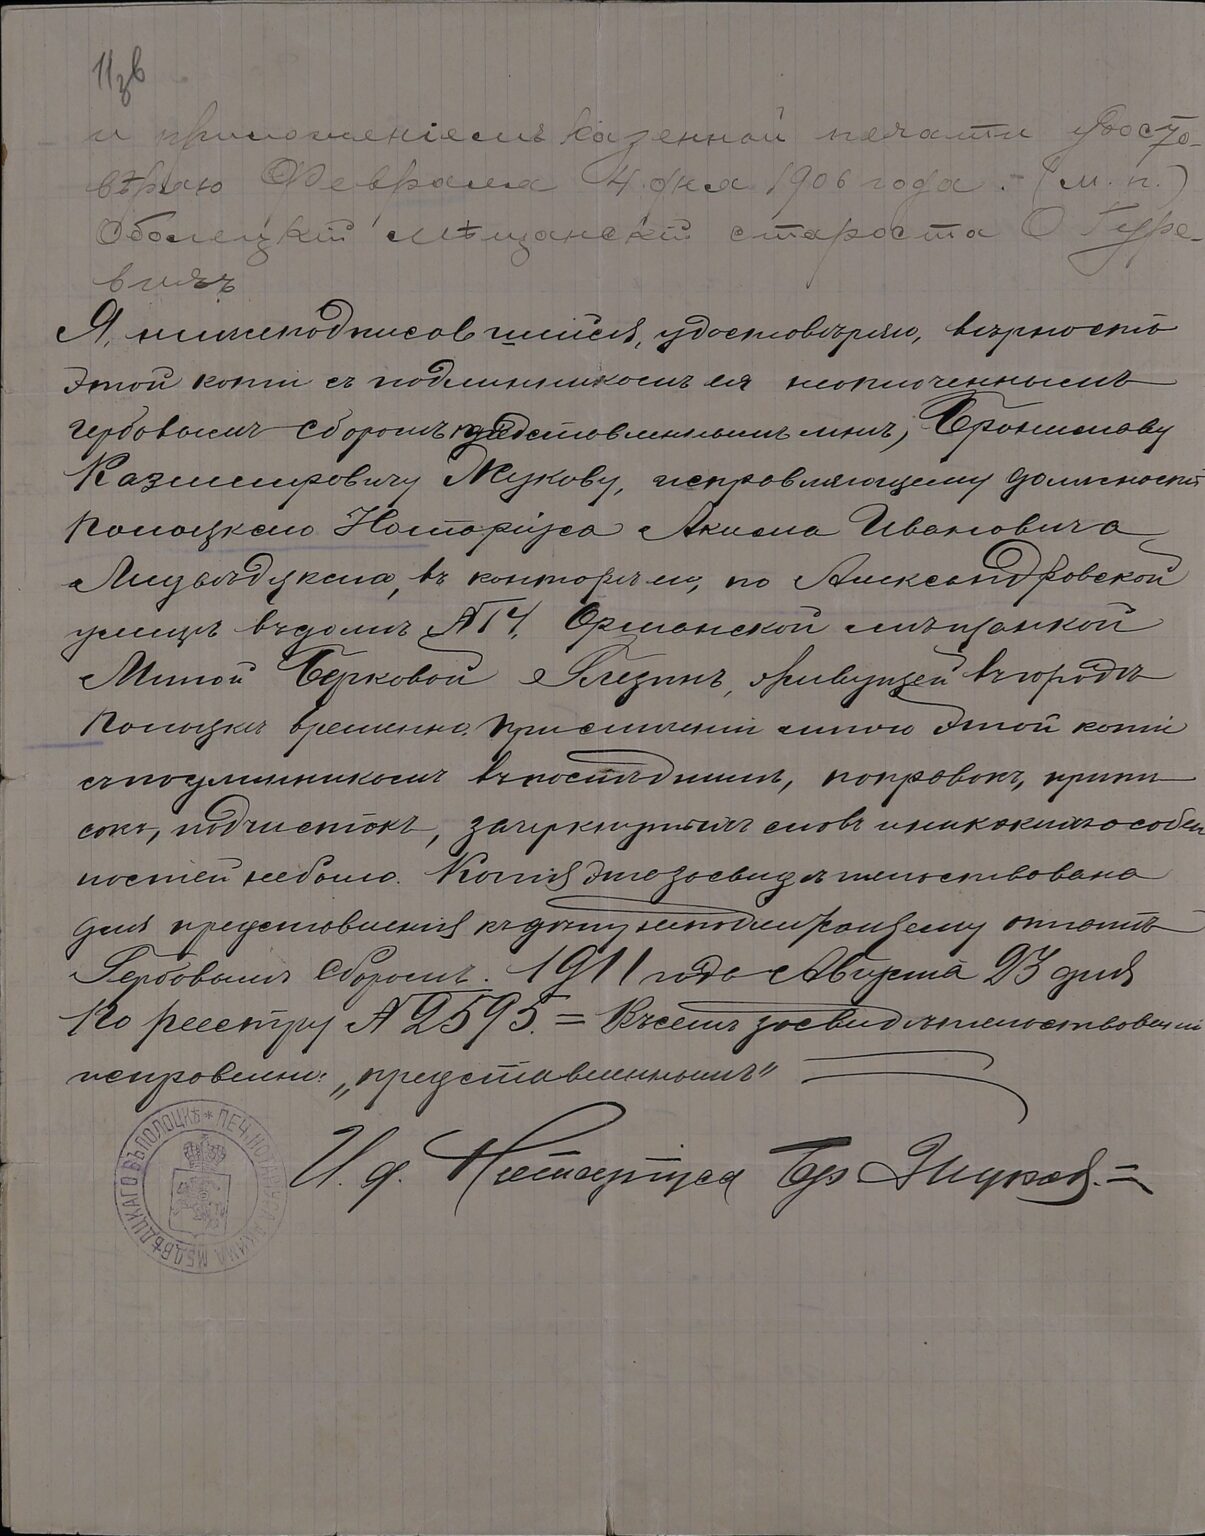 11 зв
и приложеніемъ казенной печати удосто-
вѣряю Февраля 4 дня 1906 года. - (м. п.)
Оболецкій мѣщанскій староста О Гуре-
вичъ
Я, нижеподписавшійся, удостовѣряю, вѣрность
этой копіи съ подлинникомъ ея неоплоченнымъ
гербовымъ сборомъ представленнымъ мнѣ, Брониславу
Казимировичу Жукову, исправляющему должность
Полоцкаго Нотаріуса Акима Ивановича
Медвѣдцкаго, въ конторѣ его, по Александровской
улицѣ въ домѣ №, Оршанской мѣщанкой
Миной Берковой, живущей въ городѣ
Полоцкѣ временно. При сличеніи мною этой копіи
съ подлинникомъ въ послѣднемъ, поправокъ, припи
сокъ, подчистокъ, зачеркнутыхъ словъ и никакихъ особен
ностей не было. Копія эта засвидѣтельствована
для представленія къ дѣлу неподлежащему оплатѣ
Гербовымъ Сборомъ. 1911 года Августа 23 дня
По реестру № 2595. = Въ семъ засвидѣтельствованіи
исправлено: „представленнымъ"
И. д. Нотаріуса Бр Жуковъ. =
ПЕЧ. НОТАРІУСА АКИМА МЕДВѢДЦКАГО ВЪ ПОЛОЦКѢ *